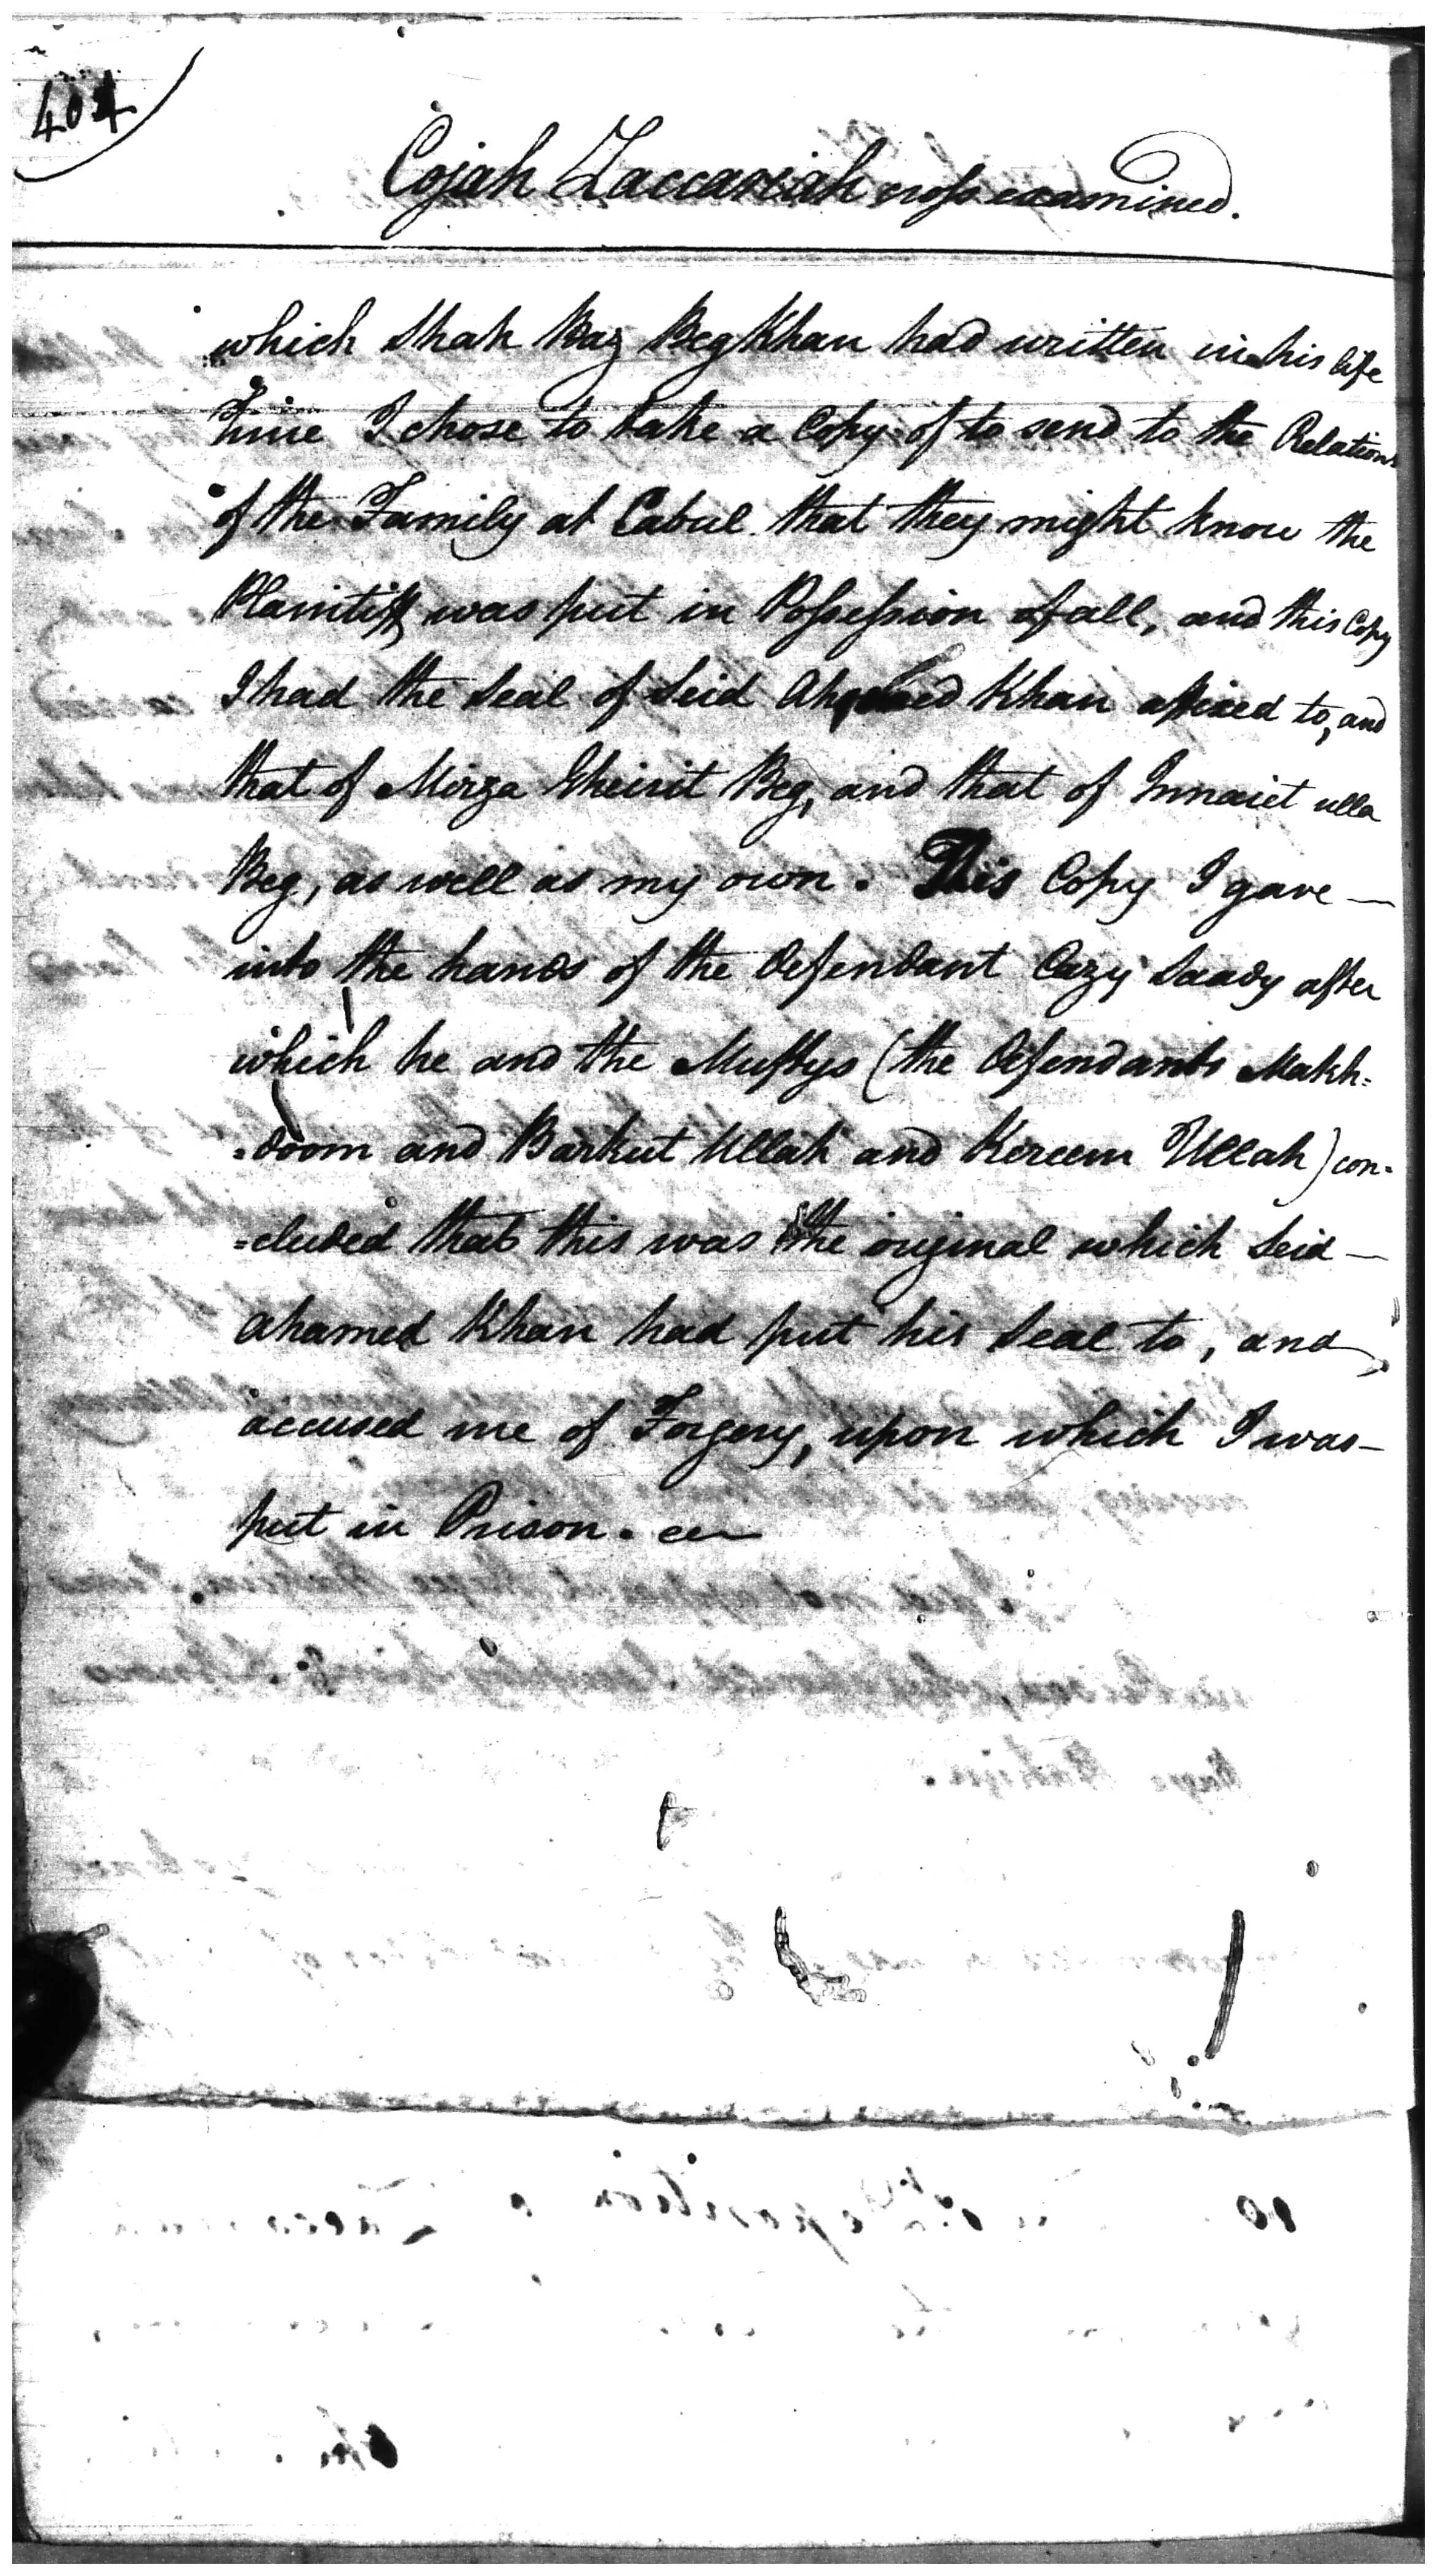 404
Cojah Zaccariah cross examined.
which Shah Baz Beg Khan had written in his life
Time I chose to take a Copy of to send to the Relations
of the Family at Cabul that they might know the
Plaintiff was put in Possession of all, and this Copy
I had the Seal of Seid Ahamed Khan affixed to, and
that of Mirza Kheirit Beg, and that of Innaiet ulla
Beg, as well as my own. This Copy I gave —
into the hands of the Defendant Cazy Saady after
which he and the Muftys (the Defendants Makh=
=doom and Barkut Ullah and Kereem Ullah) con=
=cluded that this was the original which Seid —
Ahamed Khan had put his Seal to, and
accused me of Forgery, upon which I was —
put in Prison.